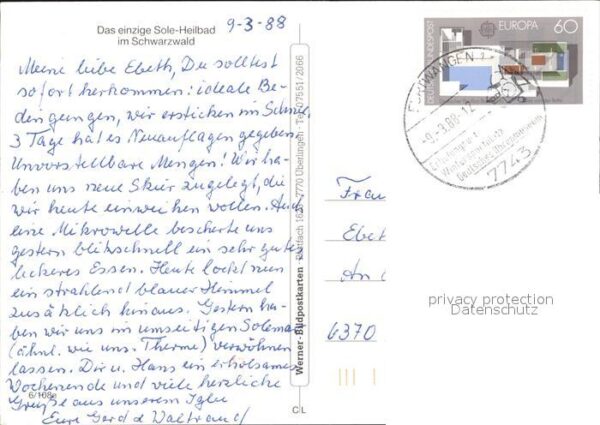 Das einzige Sole-Heilbad
im Schwarzwald
9-3-88
Meine liebe Ebeth, Du solltest
sofort herkommen: ideale Be-
dingungen, wir ersticken im Schnee.
3 Tage hat es Neuauflagen gegeben
Unvorstellbare Mengen! Wir ha-
ben uns neue Skier zugelegt, die
wir heute einweihen wollen. Auch
eine Mikrowelle bescherte uns
gestern blitzschnell ein sehr gutes
leckeres Essen. Heute lockt nun
ein strahlend blauer Himmel
zusätzlich hinaus. Gestern ha-
ben wir uns im umseitigen Solemar
(ähnl. wie uns. Therme) verwöhnen
lassen. Dir u. Hans ein erholsames
Wochenende und viele herzliche
Grüße aus unserem Iglu
Eure Gerd & Waltraud
6/108a
CL
Werner-Bildpostkarten · Postfach · 7770 Überlingen · Tel. 07551/2066
DEUTSCHE BUNDESPOST
EUROPA 60
FURTWANGEN
-9.-3.88-12
Deutsches Uhrenmuseum
7743
Frau
Ebet
An
6370
privacy protection
Datenschutz